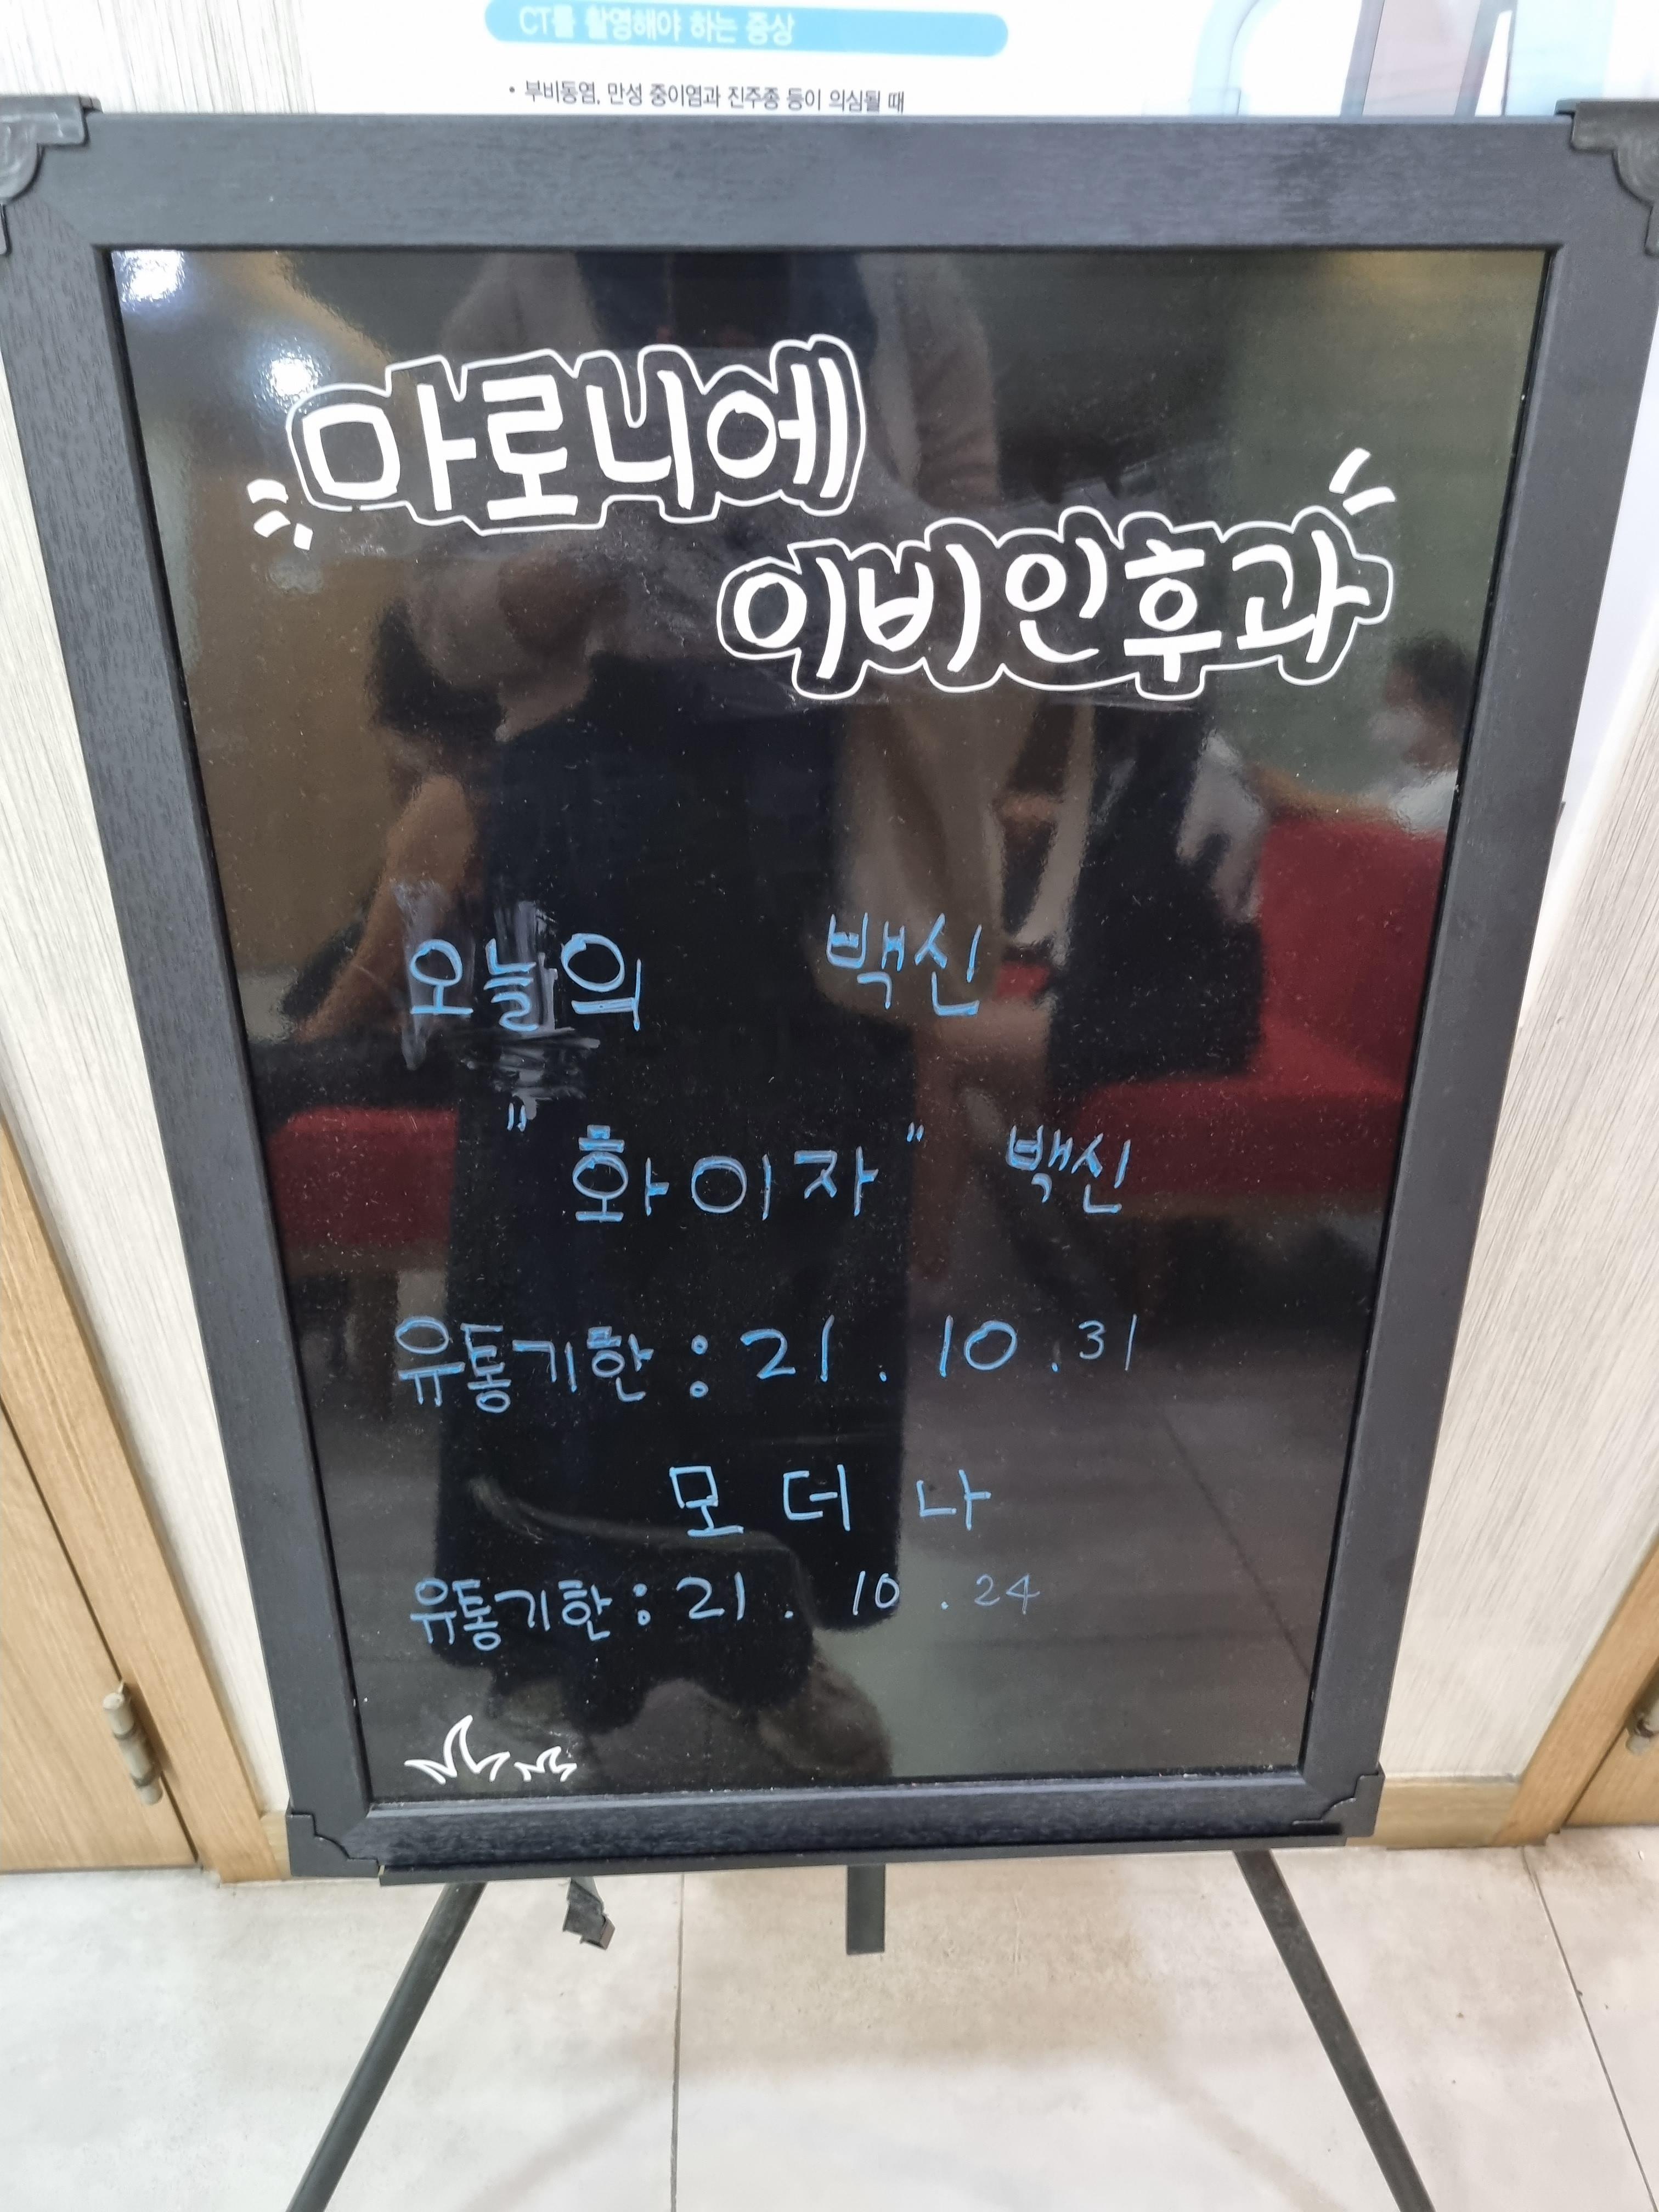 CT를 촬영해야 하는 증상
• 부비동염, 만성 중이염과 진주종 등이 의심될 때
마로니에
이비인후과
오늘의 백신
"화이자" 백신
유통기한 : 21 . 10 . 31
모더나
유통기한 : 21 . 10 . 24